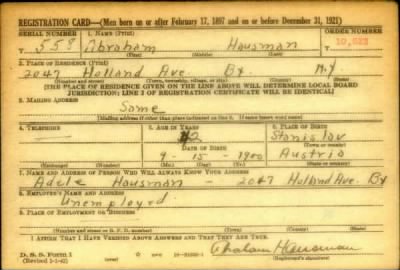 REGISTRATION CARD—(Men born on or after February 17, 1897 and on or before December 31, 1921)
SERIAL NUMBER 1. NAME (Print) ORDER NUMBER
T 559 Abraham Hausman 10,
(First) (Middle) (Last)
2. PLACE OF RESIDENCE (Print)
2047 Holland Ave. Bx. N.Y
(Number and street) (Town, township, village, or city) (County) (State)
[THE PLACE OF RESIDENCE GIVEN ON THE LINE ABOVE WILL DETERMINE LOCAL BOARD
JURISDICTION; LINE 2 OF REGISTRATION CERTIFICATE WILL BE IDENTICAL]
3. MAILING ADDRESS
Same
[Mailing address if other than place indicated on line 2. If same insert word same]
4. TELEPHONE 5. AGE IN YEARS 6. PLACE OF BIRTH
42 Stanislav
DATE OF BIRTH (Town or county)
9 - 15 - 1900 Austria
(Exchange) (Number) (Mo.) (Day) (Yr.) (State or country)
7. NAME AND ADDRESS OF PERSON WHO WILL ALWAYS KNOW YOUR ADDRESS
Adele Hausman - 2047 Holland Ave. Bx
8. EMPLOYER'S NAME AND ADDRESS
Unemployed
9. PLACE OF EMPLOYMENT OR BUSINESS
(Number and street or R. F. D. number) (Town) (County) (State)
I AFFIRM THAT I HAVE VERIFIED ABOVE ANSWERS AND THAT THEY ARE TRUE.
D. S. S. Form 1
(Revised 1-1-42) (over) Abraham Hausman
(Registrant's signature)